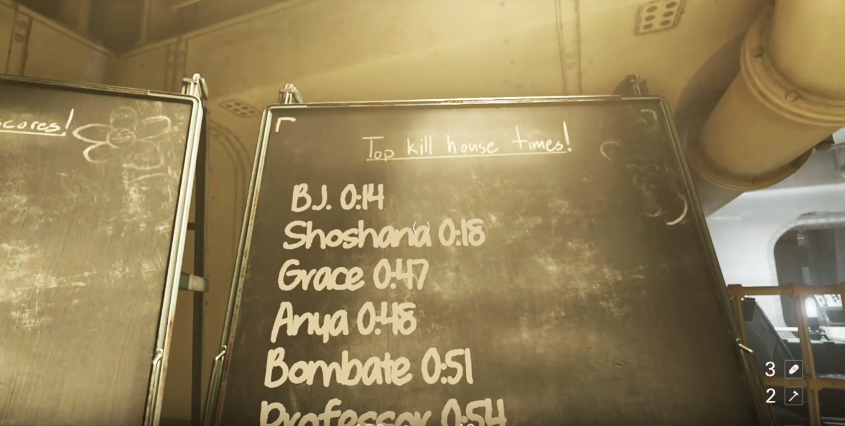 scores!
Top kill house times!
B.J. 0:14
Shoshana 0:18
Grace 0:47
Anya 0:48
Bombate 0:51
Professor 0:54
3
2